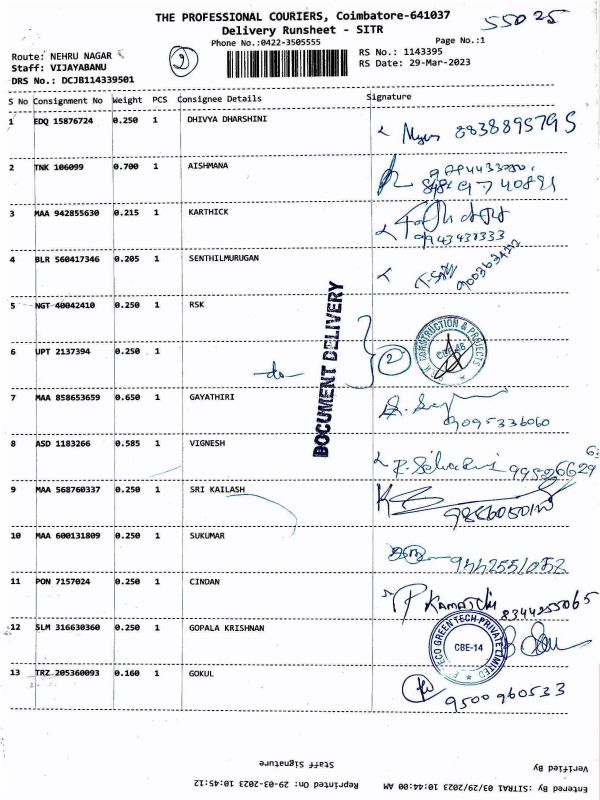 THE PROFESSIONAL COURIERS, Coimbatore-641037
55025
Delivery Runsheet - SITR
Phone No.:0422-3505555
Page No.:1
Route: NEHRU NAGAR
2
RS No.: 1143395
Staff: VIJAYABANU
RS Date: 29-Mar-2023
DRS No.: DCJB114339501
S No Consignment No Weight PCS Consignee Details Signature
1 EDQ 15876724 0.250 1 DHIVYA DHARSHINI 8838895795
2 TNK 106099 0.700 1 AISHMANA
3 MAA 942855630 0.215 1 KARTHICK 9943438333
4 BLR 560417346 0.205 1 SENTHILMURUGAN
5 NGT 40042410 0.250 1 RSK
DOCUMENT DELIVERY
CONSTRUCTION & PROJECTS
6 UPT 2137394 0.250 1 do 2
7 MAA 858653659 0.650 1 GAYATHIRI 9095336060
8 ASD 1183266 0.585 1 VIGNESH
9 MAA 568760337 0.250 1 SRI KAILASH
10 MAA 600131809 0.250 1 SUKUMAR
11 PON 7157024 0.250 1 CINDAN 8344255065
12 SLM 316630360 0.250 1 GOPALA KRISHNAN
ECO GREEN TECH PRIVATE LIMITED
CBE-14
13 TRZ 205360093 0.160 1 GOKUL 9500960533
Staff Signature
Verified By
Reprinted On: 29-03-2023 10:45:12
Entered By :SITRA1 / 03/29/2023 10:44:00 AM